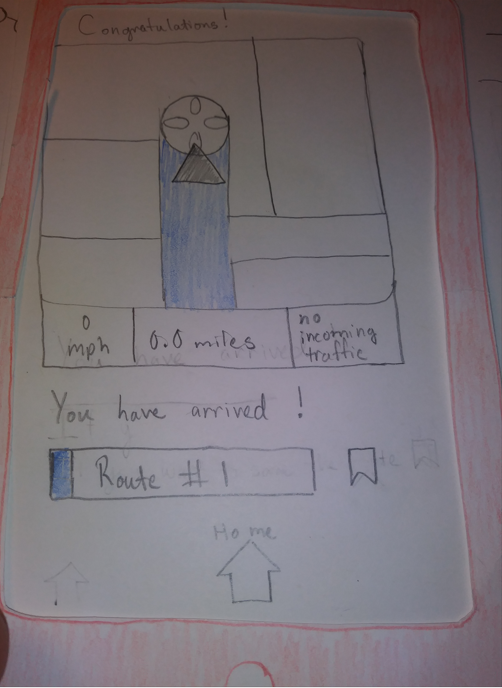 Congratulations!
0
mph
0.0 miles
no
incoming
traffic
You have arrived!
Route #1
Home